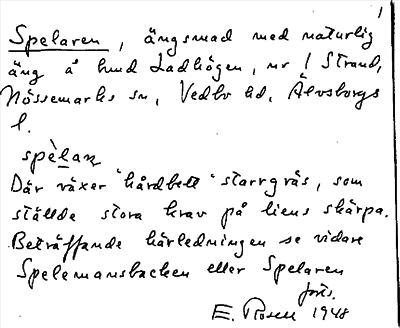 1
Spelaren, ängsmad med naturlig
äng å hmd Ladhögen, nr 1 Strand,
Nössemarks sn, Vedbo hd, Älvsborgs
l.
spè̱lan
Där växer "hårdbett" starrgräs, som
ställde stora krav på liens skärpa.
Beträffande härledningen se vidare
Spelemansbacken eller Spelaren
forts.
E. Rosell 1948